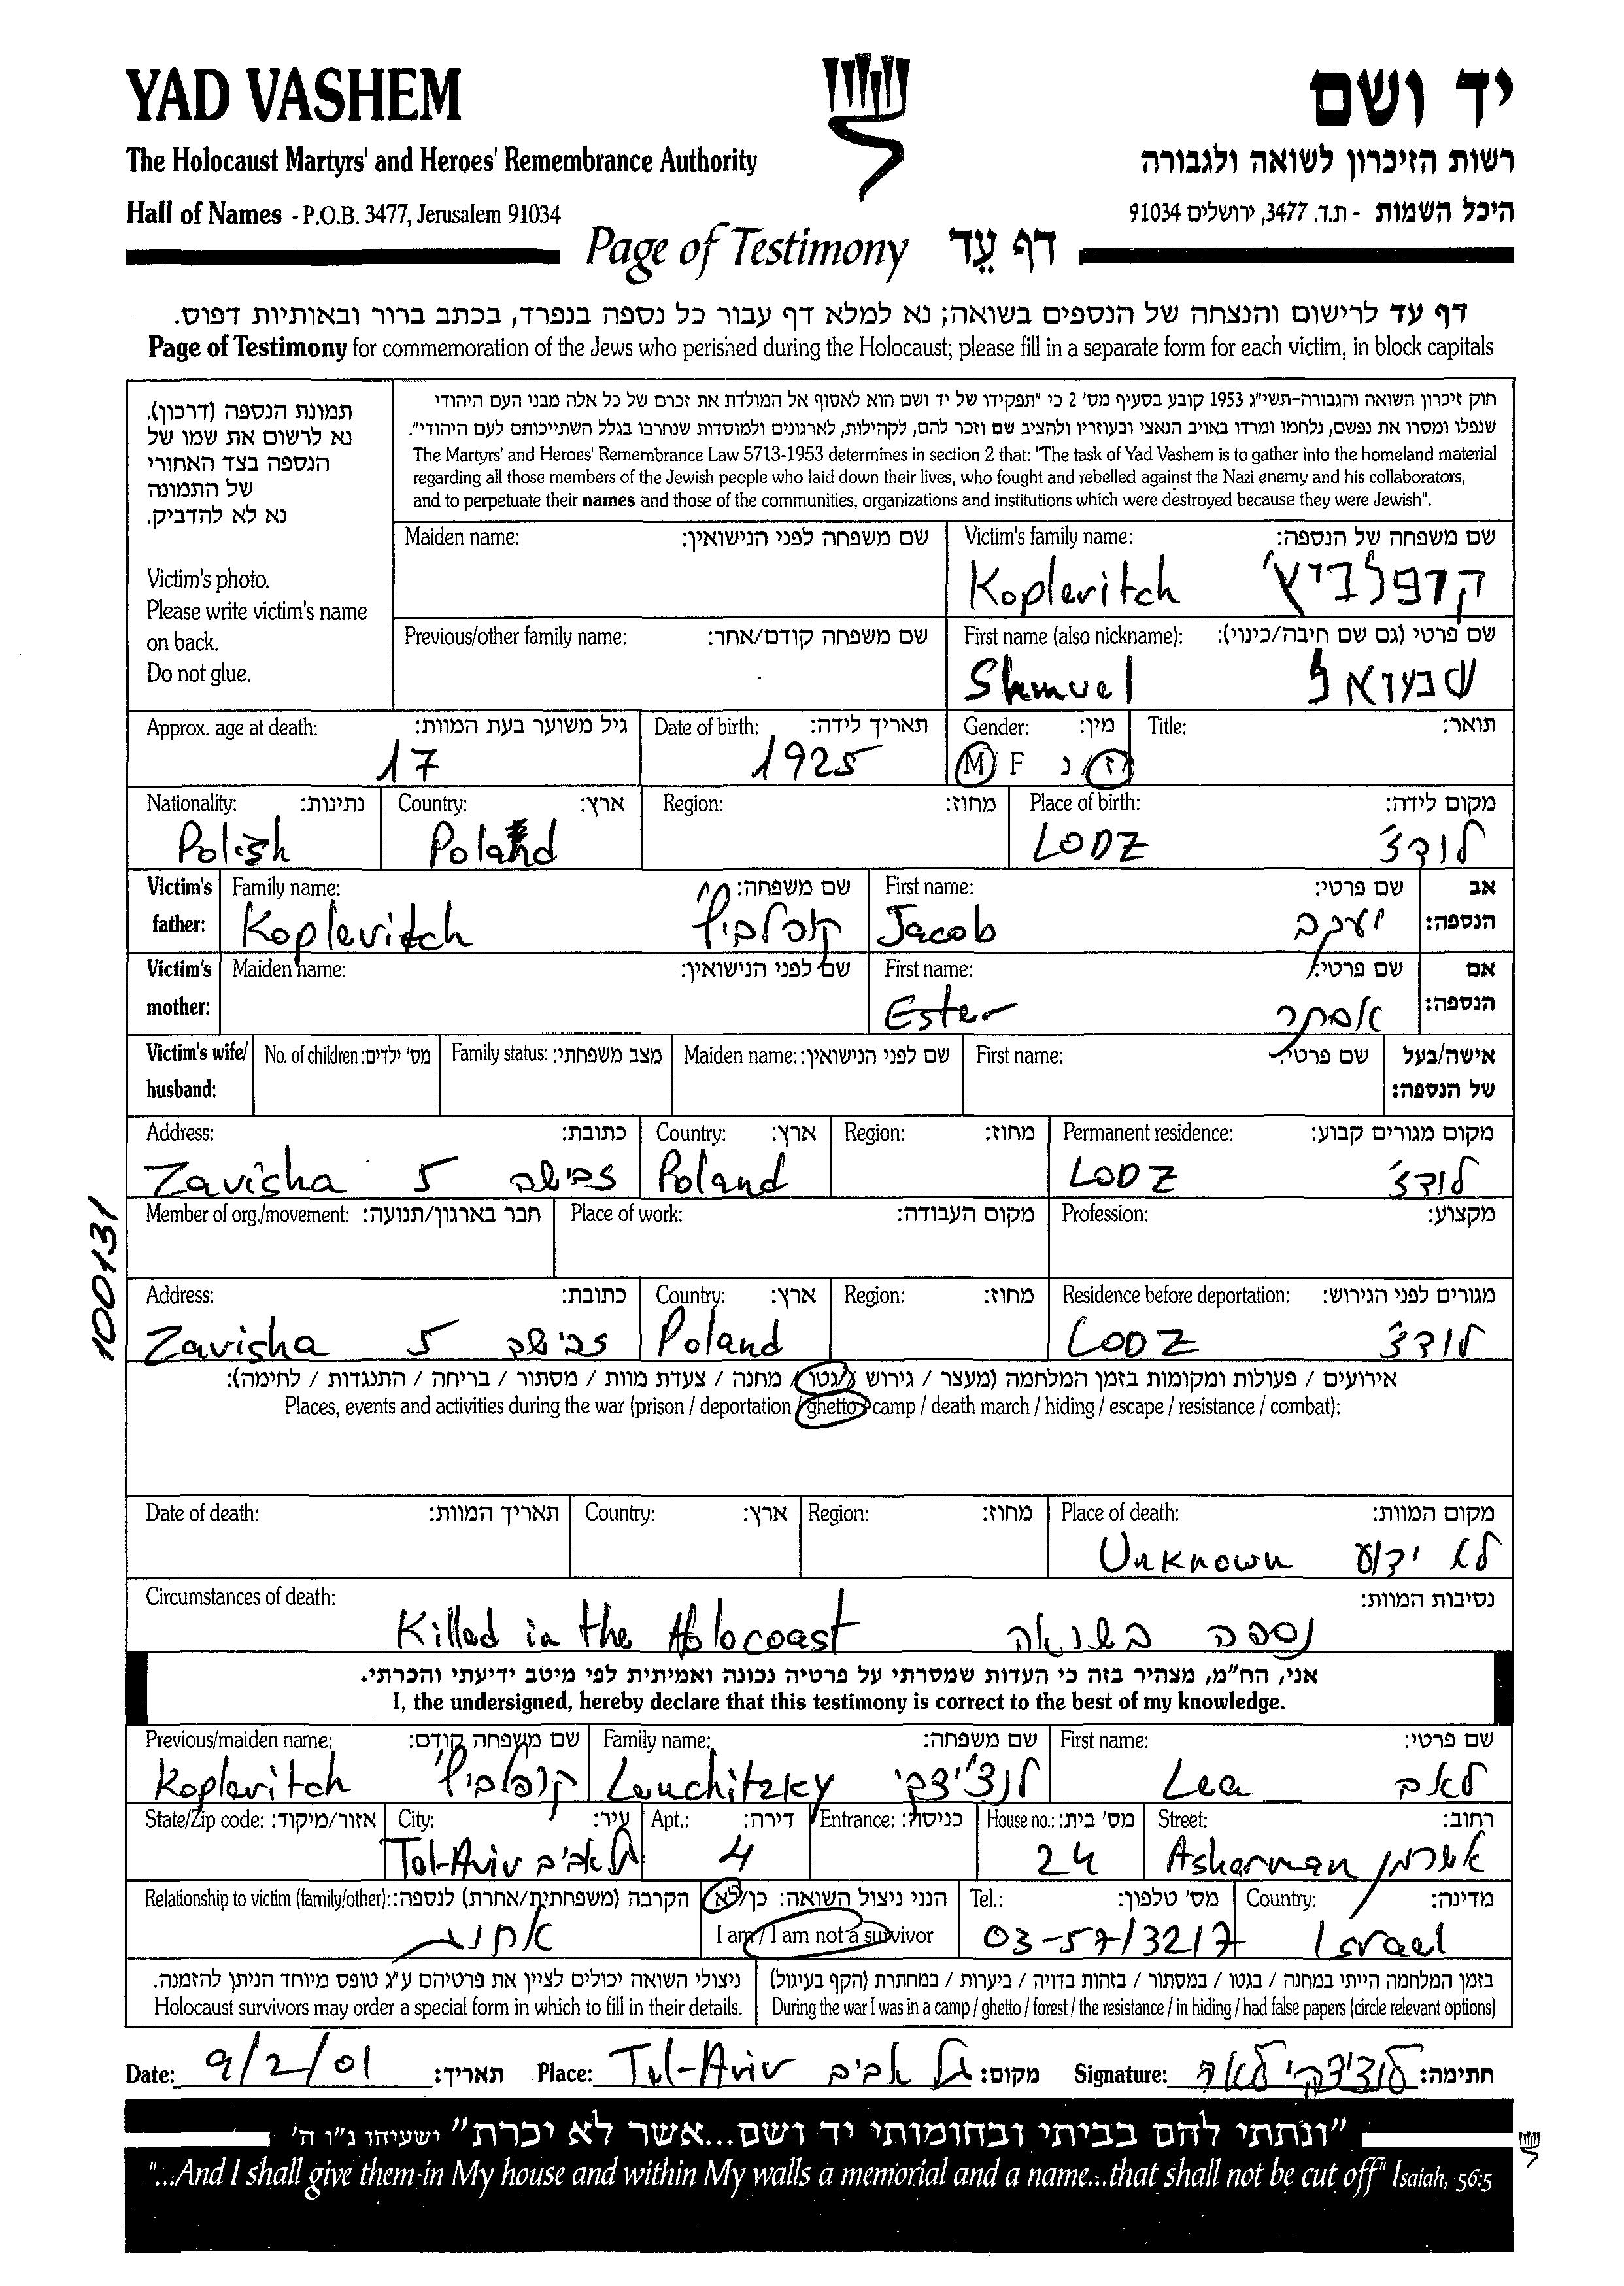 YAD VASHEM
יד ושם
The Holocaust Martyrs' and Heroes' Remembrance Authority
רשות הזיכרון לשואה ולגבורה
Hall of Names - P.O.B. 3477, Jerusalem 91034
היכל השמות - ת.ד. 3477, ירושלים 91034
Page of Testimony דף עֵד
דף עד לרישום והנצחה של הנספים בשואה; נא למלא דף עבור כל נספה בנפרד, בכתב ברור ובאותיות דפוס.
Page of Testimony for commemoration of the Jews who perished during the Holocaust; please fill in a separate form for each victim, in block capitals
תמונת הנספה (דרכון).
נא לרשום את שמו של
הנספה בצד האחורי
של התמונה
נא לא להדביק.
Victim's photo.
Please write victim's name
on back.
Do not glue.
חוק זיכרון השואה והגבורה-תשי"ג 1953 קובע בסעיף מס' 2 כי "תפקידו של יד ושם הוא לאסוף אל המולדת את זכרם של כל אלה מבני העם היהודי
שנפלו ומסרו את נפשם, נלחמו ומרדו באויב הנאצי ובעוזריו ולהציב שם וזכר להם, לקהילות, לארגונים ולמוסדות שנחרבו בגלל השתייכותם לעם היהודי".
The Martyrs' and Heroes' Remembrance Law 5713-1953 determines in section 2 that: "The task of Yad Vashem is to gather into the homeland material
regarding all those members of the Jewish people who laid down their lives, who fought and rebelled against the Nazi enemy and his collaborators,
and to perpetuate their names and those of the communities, organizations and institutions which were destroyed because they were Jewish".
Maiden name: שם משפחה לפני הנישואין:
Victim's family name: שם משפחה של הנספה:
Koplevitch קופלביץ'
Previous/other family name: שם משפחה קודם/אחר:
First name (also nickname): שם פרטי (גם שם חיבה/כינוי):
Shmuel שמואל
Approx. age at death: גיל משוער בעת המוות:
17
Date of birth: תאריך לידה:
1925
Gender: מין:
M F נ ז
Title: תואר:
Nationality: נתינות:
Polish
Country: ארץ:
Poland
Region: מחוז:
Place of birth: מקום לידה:
LODZ לודז'
Victim's father:
Family name: שם משפחה:
Koplevitch קופלביץ'
First name: שם פרטי:
Jacob יעקב
אב הנספה:
Victim's mother:
Maiden name: שם לפני הנישואין:
First name: שם פרטי:
Ester אסתר
אם הנספה:
Victim's wife/ husband:
No. of children: מס' ילדים:
Family status: מצב משפחתי:
Maiden name: שם לפני הנישואין:
First name: שם פרטי:
אישה/בעל של הנספה:
Address: כתובת:
Zavisha 5 זבישה
Country: ארץ:
Poland
Region: מחוז:
Permanent residence: מקום מגורים קבוע:
LODZ לודז'
Member of org./movement: חבר בארגון/תנועה:
Place of work: מקום העבודה:
Profession: מקצוע:
100131
Address: כתובת:
Zavisha 5 זבישה
Country: ארץ:
Poland
Region: מחוז:
Residence before deportation: מגורים לפני הגירוש:
LODZ לודז'
אירועים / פעולות ומקומות בזמן המלחמה (מעצר / גירוש / גטו / מחנה / צעדת מוות / מסתור / בריחה / התנגדות / לחימה):
Places, events and activities during the war (prison / deportation / ghetto / camp / death march / hiding / escape / resistance / combat):
Date of death: תאריך המוות:
Country: ארץ:
Region: מחוז:
Place of death: מקום המוות:
Unknown לא ידוע
Circumstances of death: נסיבות המוות:
Killed in the Holocoast נספה בשואה
אני, הח"מ, מצהיר בזה כי העדות שמסרתי על פרטיה נכונה ואמיתית לפי מיטב ידיעתי והכרתי.
I, the undersigned, hereby declare that this testimony is correct to the best of my knowledge.
Previous/maiden name: שם משפחה קודם:
Koplevitch קופלביץ'
Family name: שם משפחה:
Lenchitzky לנצ'יצקי
First name: שם פרטי:
Lea לאה
State/Zip code: אזור/מיקוד:
City: עיר:
Tel-Aviv תל אביב
Apt.: דירה:
4
Entrance: כניסה:
House no.: מס' בית:
24
Street: רחוב:
Asharman אשרמן
Relationship to victim (family/other): הקרבה (משפחתית/אחרת) לנספה:
הנני ניצול השואה: כן/לא
I am / I am not a survivor
Tel.: מס' טלפון:
03-5713217
Country: מדינה:
Israel
ניצולי השואה יכולים לציין את פרטיהם ע"ג טופס מיוחד הניתן להזמנה.
Holocaust survivors may order a special form in which to fill in their details.
בזמן המלחמה הייתי במחנה / בגטו / במסתור / בזהות בדויה / ביערות / במחתרת (הקף בעיגול)
During the war I was in a camp / ghetto / forest / the resistance / in hiding / had false papers (circle relevant options)
Date: 9/2/01 תאריך:
Place: Tel-Aviv תל אביב מקום:
Signature: לנצ'יצקי לאה חתימה:
"ונתתי להם בביתי ובחומותי יד ושם...אשר לא יכרת" ישעיהו נ"ו ה'
"...And I shall give them in My house and within My walls a memorial and a name...that shall not be cut off" Isaiah, 56:5